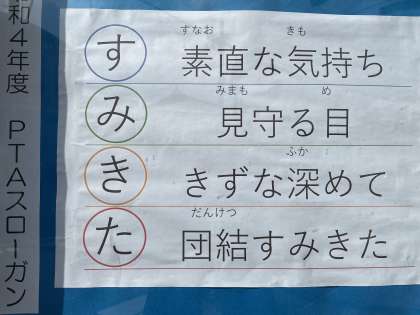 和4年度 PTAスローガン
すなお きも
す 素直な気持ち
みまも め
み 見守る目
ふか
き きずな深めて
だんけつ
た 団結すみきた